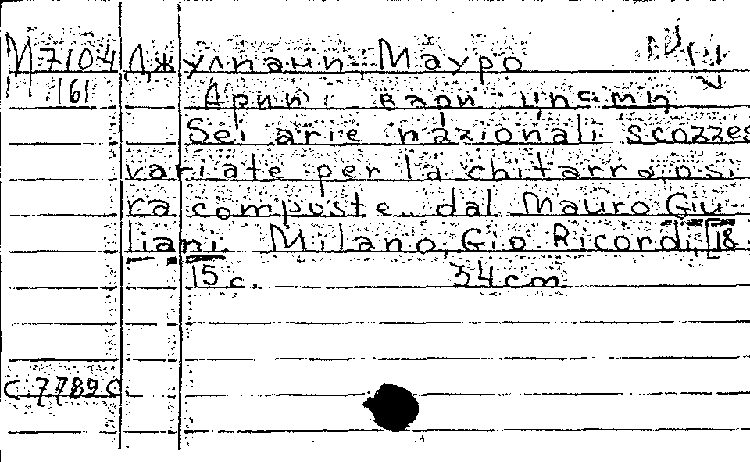 М7104 Джулиани Мауро
161
Sei arie nazionali scozzes
variate per la chitarra, osi
ra composte dal Mauro Giu-
liani. Milano, Gio Ricordi, [18
15 c. 34 cm
С 7789 с